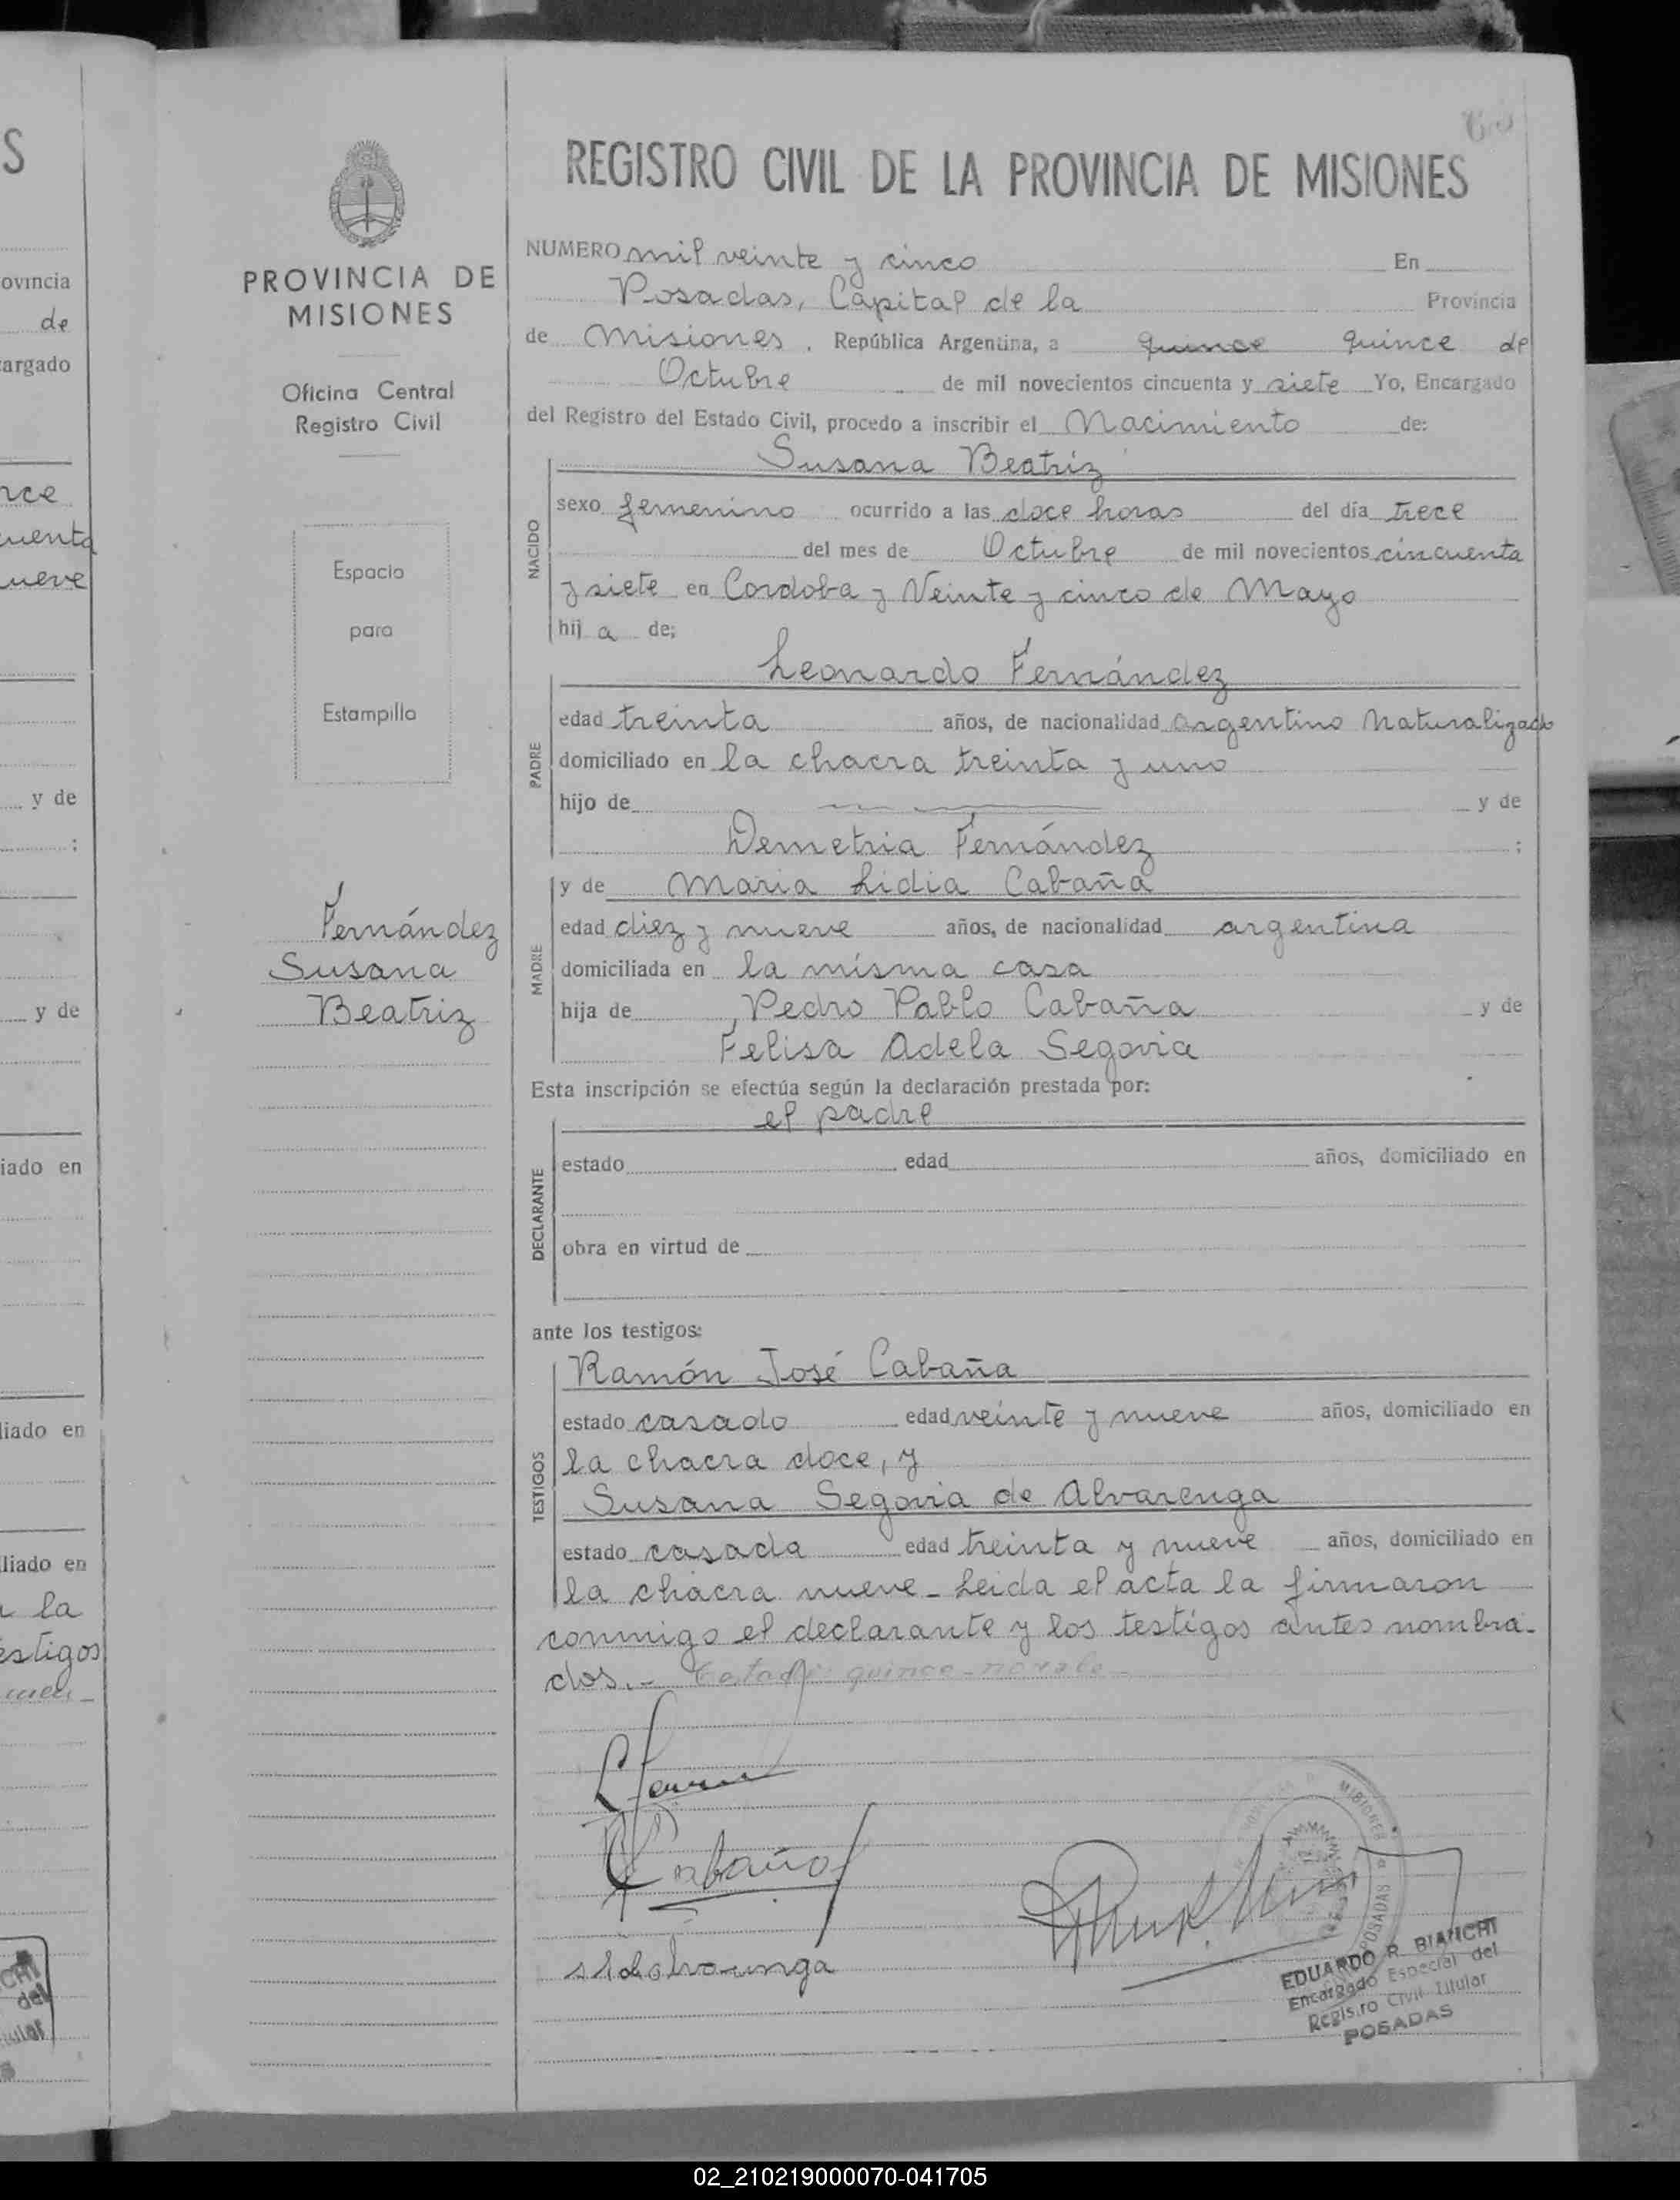 S
ovincia
de
argado
nce
cuenta
ueve
y de
;
y de
iado en
liado en
liado en
la
estigos
PROVINCIA DE
MISIONES
Oficina Central
Registro Civil
Espacio
para
Estampilla
Fernández
Susana
Beatriz
REGISTRO CIVIL DE LA PROVINCIA DE MISIONES
NUMERO mil veinte y cinco En
Posadas, Capital de la Provincia
de Misiones. República Argentina, a quince quince de
Octubre de mil novecientos cincuenta y siete Yo, Encargado
del Registro del Estado Civil, procedo a inscribir el Nacimiento de:
NACIDO
Susana Beatriz
sexo femenino ocurrido a las doce horas del día trece
del mes de Octubre de mil novecientos cincuenta
y siete en Cordoba y Veinte y cinco de Mayo
hij a de;
PADRE
Leonardo Fernández
edad treinta años, de nacionalidad argentino naturalizado
domiciliado en la chacra treinta y uno
hijo de y de
Demetria Fernández ;
MADRE
y de Maria Lidia Cabaña
edad diez y nueve años, de nacionalidad argentina
domiciliada en la misma casa
hija de Pedro Pablo Cabaña y de
Felisa Adela Segovia
Esta inscripción se efectúa según la declaración prestada por:
DECLARANTE
el padre
estado edad años, domiciliado en
obra en virtud de
ante los testigos:
TESTIGOS
Ramón José Cabaña
estado casado edad veinte y nueve años, domiciliado en
la chacra doce, y
Susana Segovia de Alvarenga
estado casada edad treinta y nueve años, domiciliado en
la chacra nueve - Leida el acta la firmaron
conmigo el declarante y los testigos antes nombra-
dos.- Testado: quince - no vale
Cabaña
MISIONES
POSADAS
EDUARDO R. BIANCHI
Encargado Especial del
Registro Civil Titular
POSADAS
02_210219000070-041705